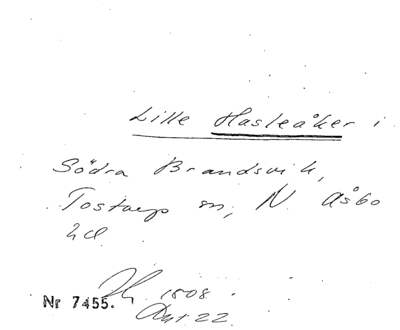 Lille Hasleåker i
Södra Brandsvik,
Tostarp sn, N. Åsbo
hd.
1808
Nr 7455.
22